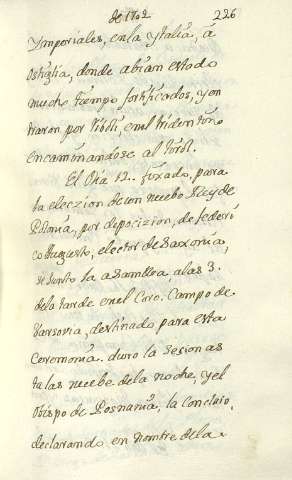 de 1702
226
Ymperiales, en la Ytalia, á
Ostiglia, donde abian estado
mucho tiempo fortificados, y en
traron por
encaminandose al
El Dia 12.. fixado, para
la eleczion de un nuebo Rey de
Polonia, por depocizion, de federi
co Augusto, elector de Saxonia,
se Junto la asamblea, a las 3.
de la tarde en el Coro. Campo de
Varsovia, destinado para esta
Ceremonia. duro la Sesion as
ta las nuebe de la noche, y el
Obispo de Posnania, la Concluio,
declarando en nombre de la